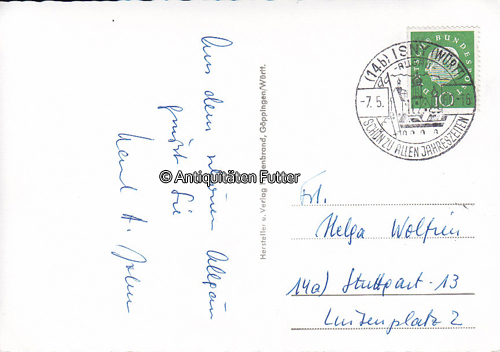 Aus dem
Allgäu
grüßt Sie
Hersteller u. Verlag
Göppingen/Württ.
© Antiquitäten Futter
(14b) ISNY (WÜRTT)
-7.5.
SCHÖN ZU ALLEN JAHRESZEITEN
BUNDESPOST
10
Frl.
Helga
14a) Stuttgart-13
Luisenplatz 2